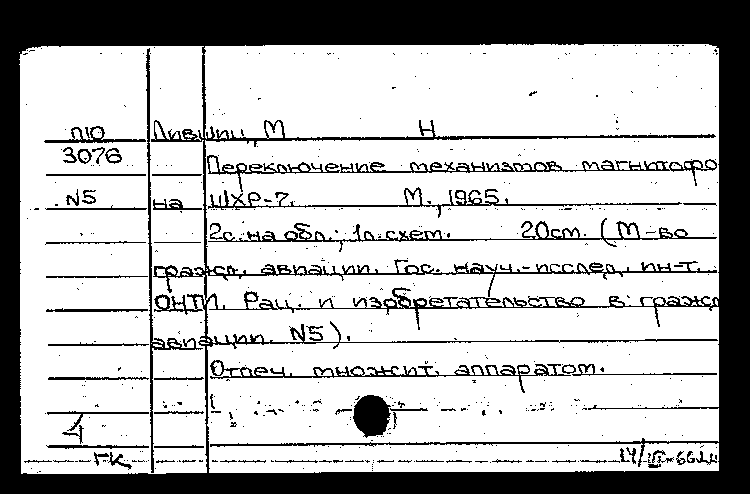 П10 Лившиц, М Н
3076 Переключение механизмов магнитофо
N5 на ШХР-7. М., 1965.
2с. на обл.; 1л. схем. 20см. (М-во
гражд. авиации. Гос. науч.-исслед. ин-т.
ОНТИ. Рац. и изобретательство в гражд
авиации. N5).
Отпеч. множит. аппаратом.
1
ГК